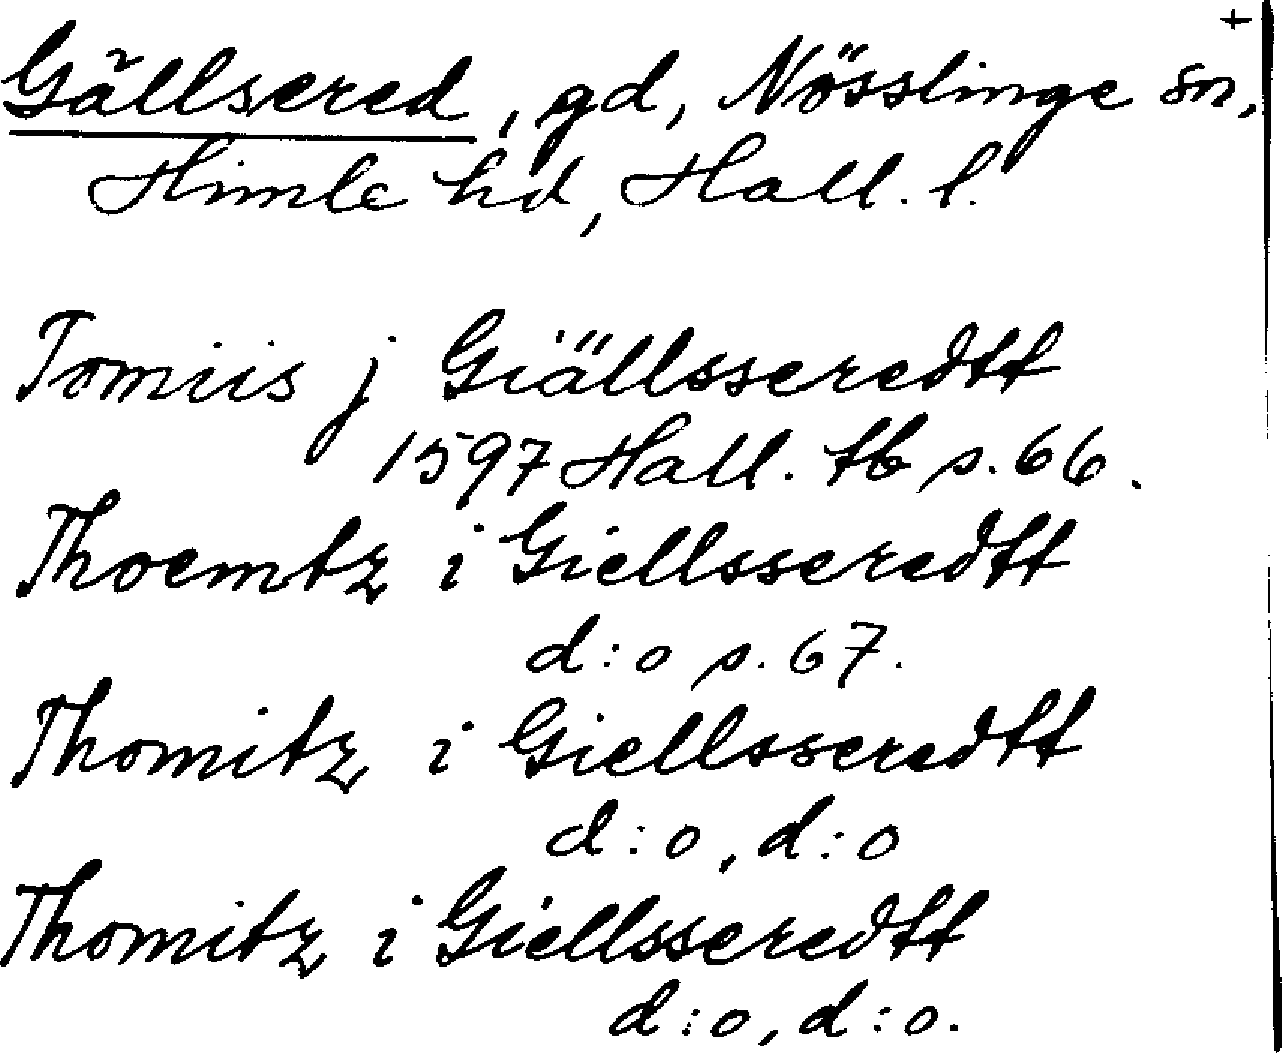 +
Gällsered, gd, Nösslinge sn,
Himle hd, Hall. l.
Tomiis j Giällsseredtt
1597 Hall. tb s. 66.
Thoemtz i Giellsseredtt
d:o s. 67.
Thomitz i Giellsseredtt
d:o, d:o
Thomitz i Giellsseredtt
d:o, d:o.